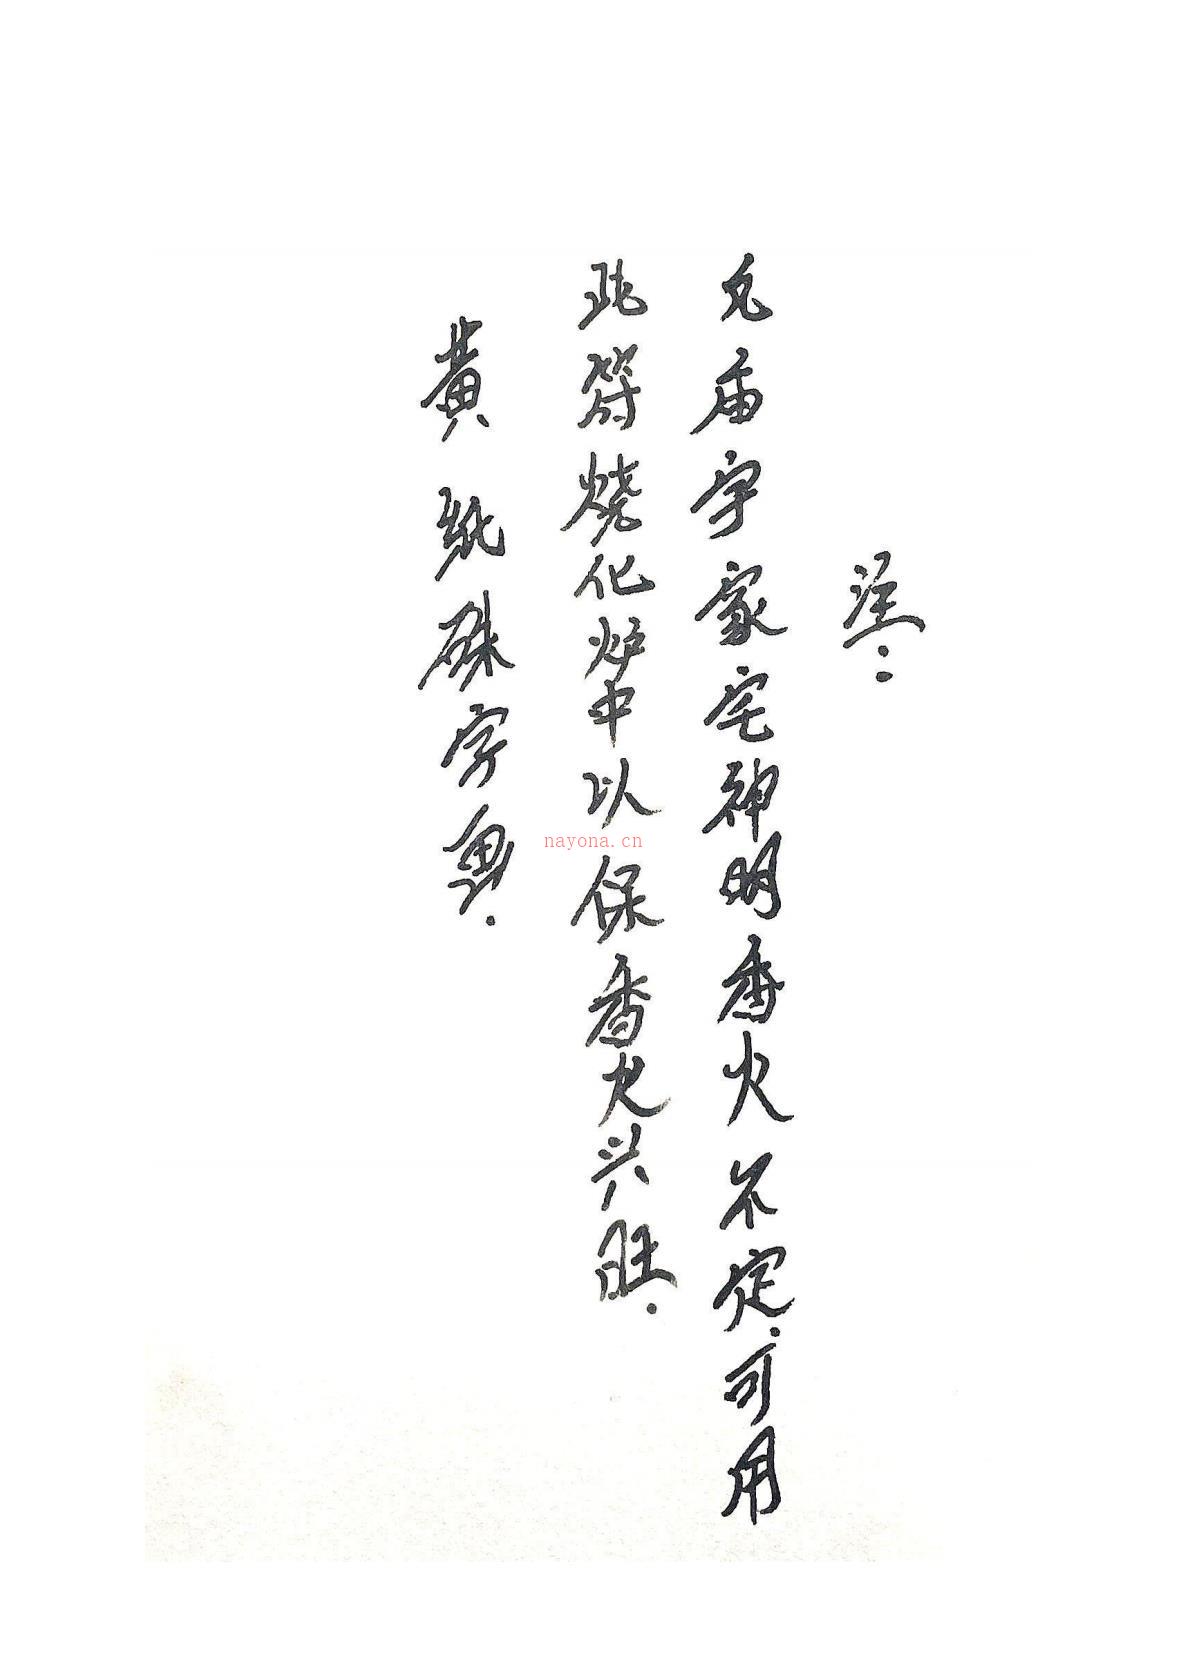 注：
凡庙宇家宅神明香火不定.可用
此符烧化炉中以保香火兴旺.
黄纸硃字
nayona.cn